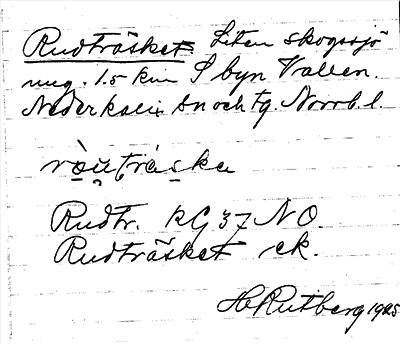 Rudträsket Liten skogssjö
ung. 1.5 km S byn Vallen.
Nederkalix sn och tg. Norrb. l.
ròu̯tráska
Rudtr. RG 37 NO.
Rudträsket ek.
H Rutberg 1925